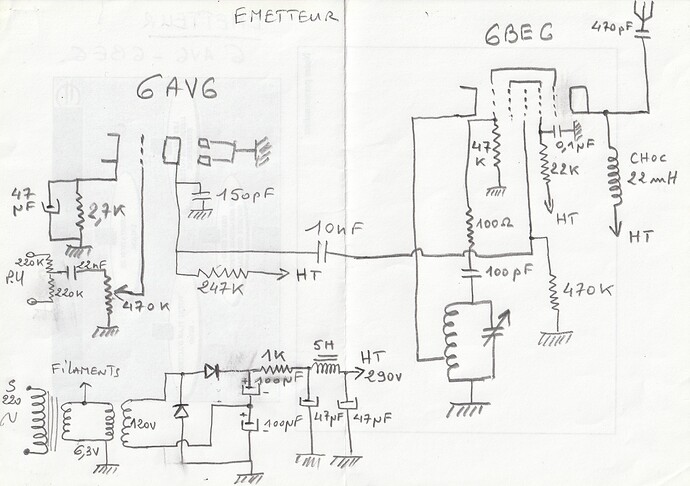 EMETTEUR
6AV6
6BE6
470pF
47
µF
2,7K
150pF
47
K
0,1µF
22K
HT
CHOC
22mH
HT
100Ω
10nF
P.U
220K
22nF
220K
470K
247K
HT
100pF
470K
FILAMENTS
S
220
6,3V
120V
1K
5H
HT
290V
+
100µF
-
+
100µF
-
47µF
47µF